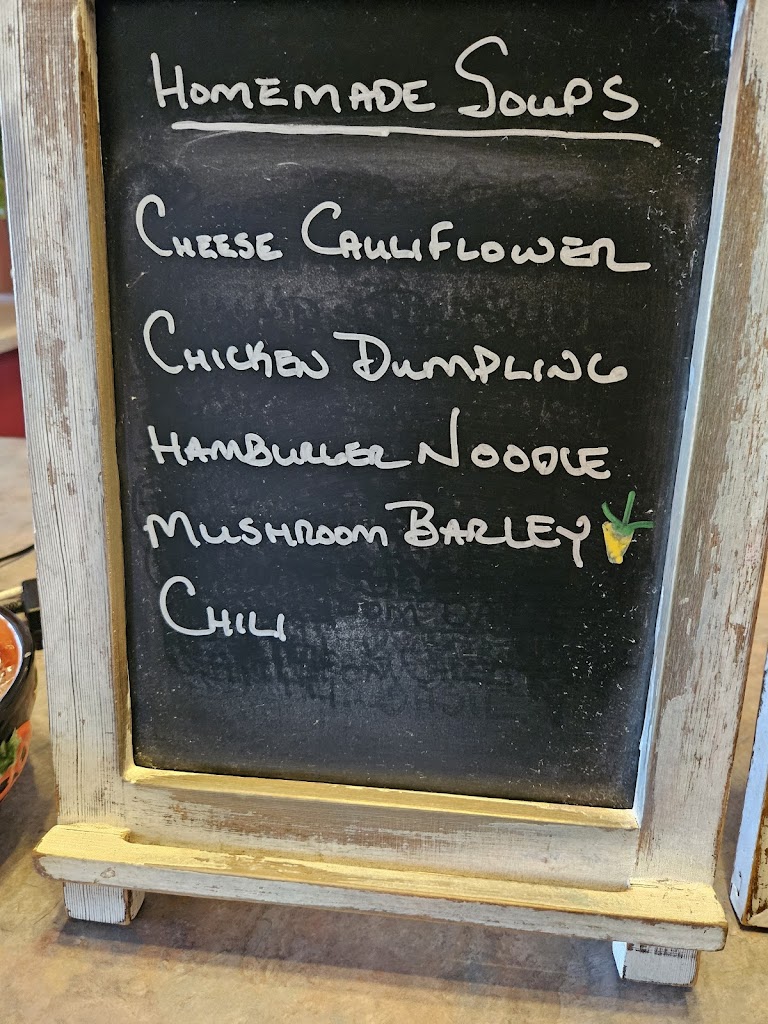 HOMEMADE SOUPS
CHEESE CAULIFLOWER
CHICKEN DUMPLING
HAMBURGER NOODLE
MUSHROOM BARLEY
CHILI